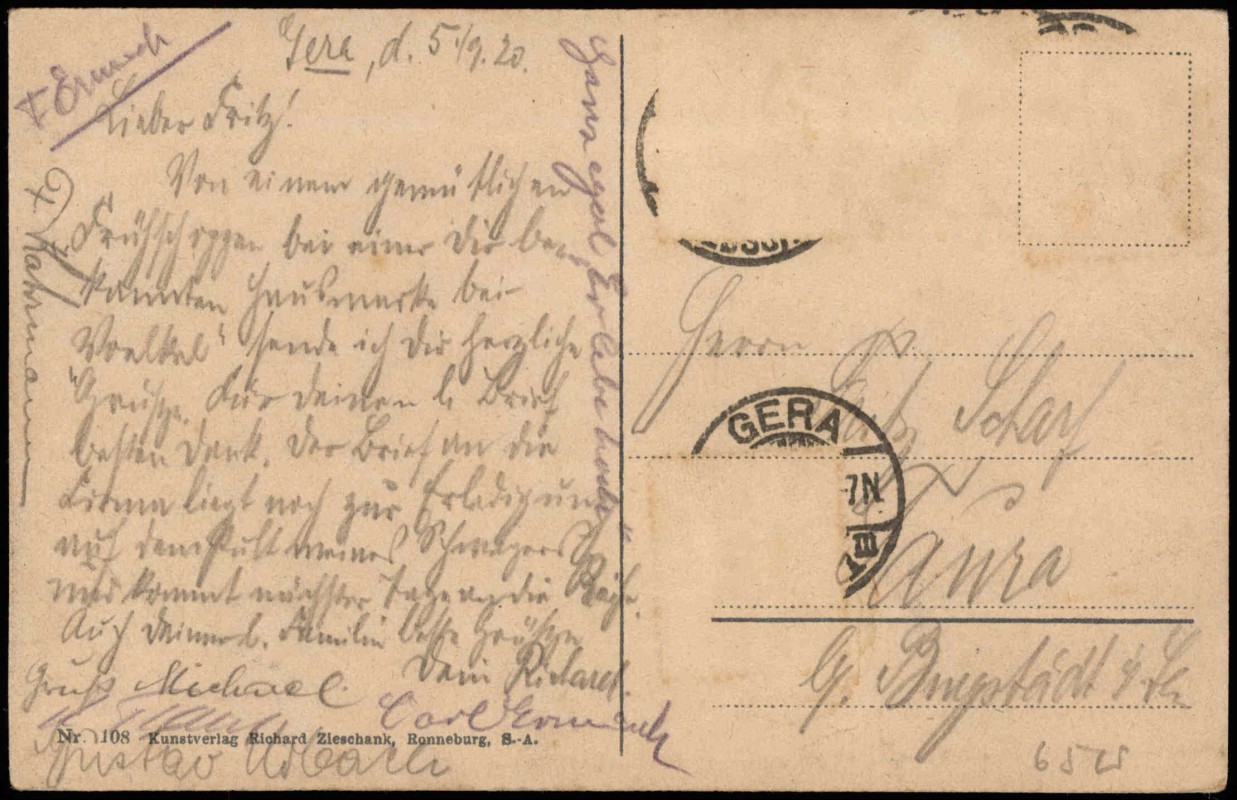 Gera, d. 5./9.20.
Lieber Fritz!
Von einem gemütlichen
Frühschoppen bei einer Dir be-
kannten Hausmarke bei
"Voelkel" sende ich Dir herzliche
Grüsse. Für deinen l. Brief
besten Dank. Der Brief an die
Firma liegt noch zur Erledigung
auf dem Pult meines Schwagers
und kommt nächster Tage an die Reihe.
Auch deiner l. Familie beste Grüsse
Dein Richard.
Gruß Michael.
Carl Ermisch
Gustav
F Ermisch
Ganz egal
Nr. 108 Kunstverlag Richard Zieschank, Ronneburg, S.-A.
Herrn
Fritz Scharf
Taura
b. Burgstädt i. Sa.
GERA
7N
6525